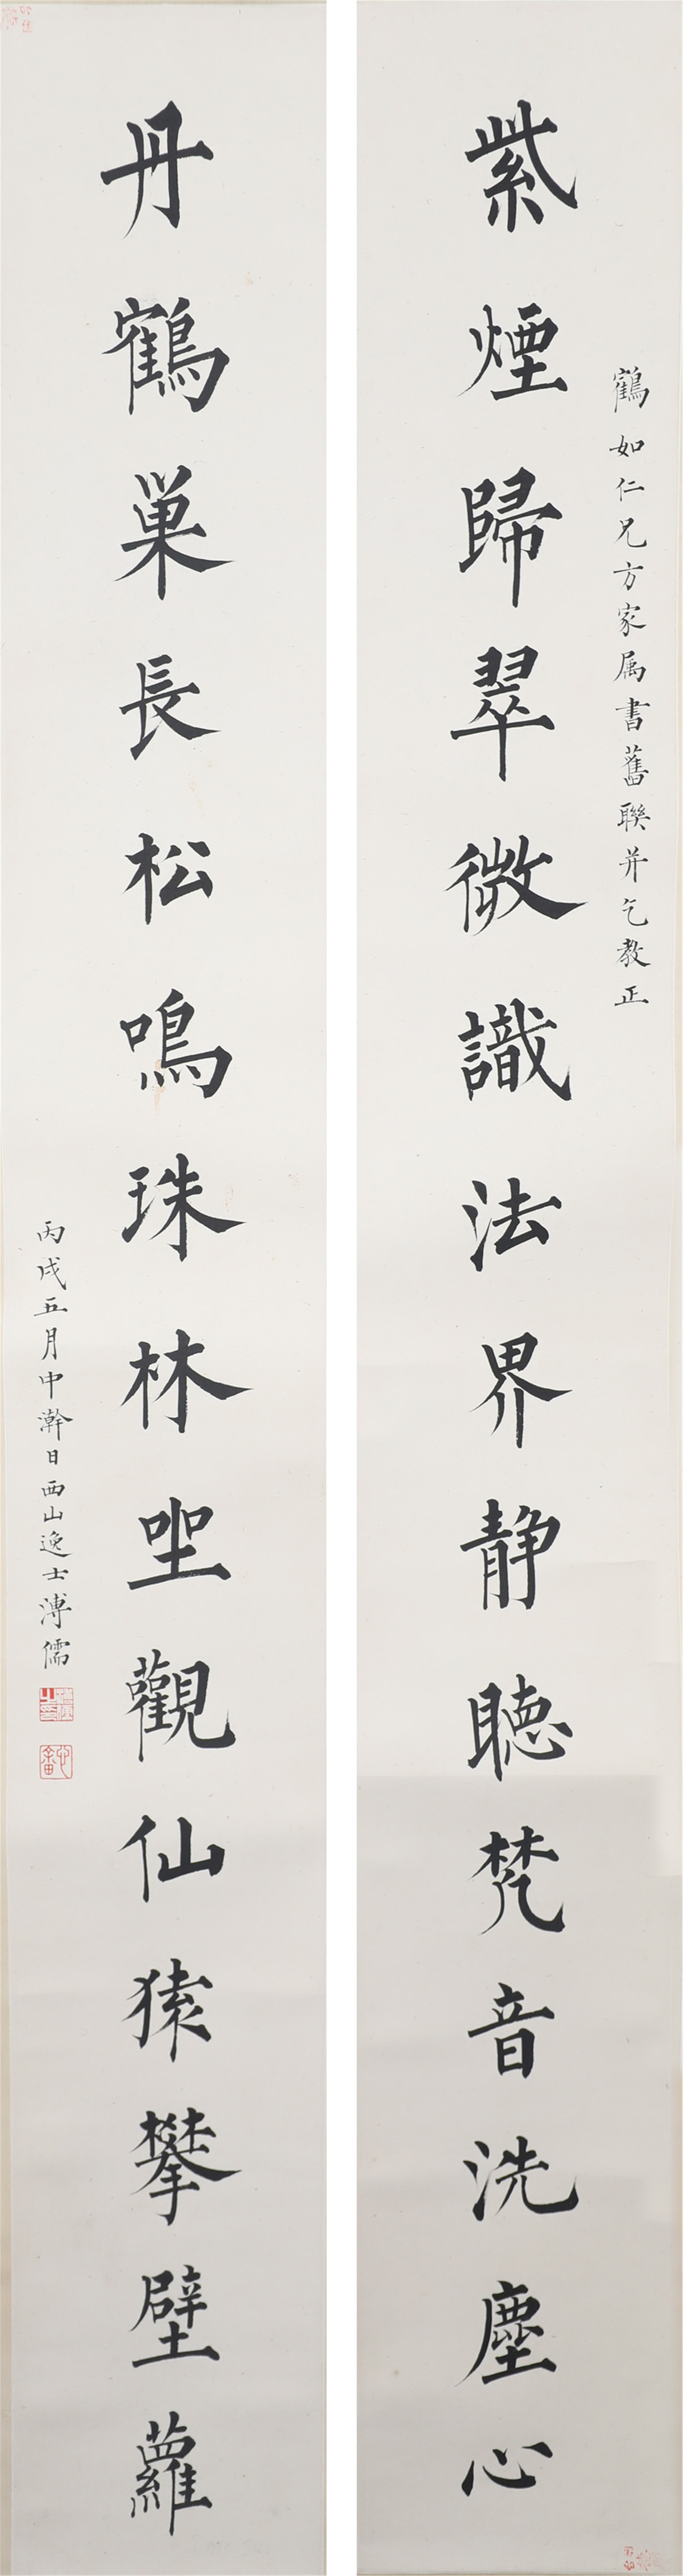 鶴如仁兄方家属書舊聯并乞教正
紫煙歸翠微識法界靜聽梵音洗塵心
丹鶴巢長松鳴珠林坐觀仙猿攀壁蘿
丙戌五月中澣日西山逸士溥儒